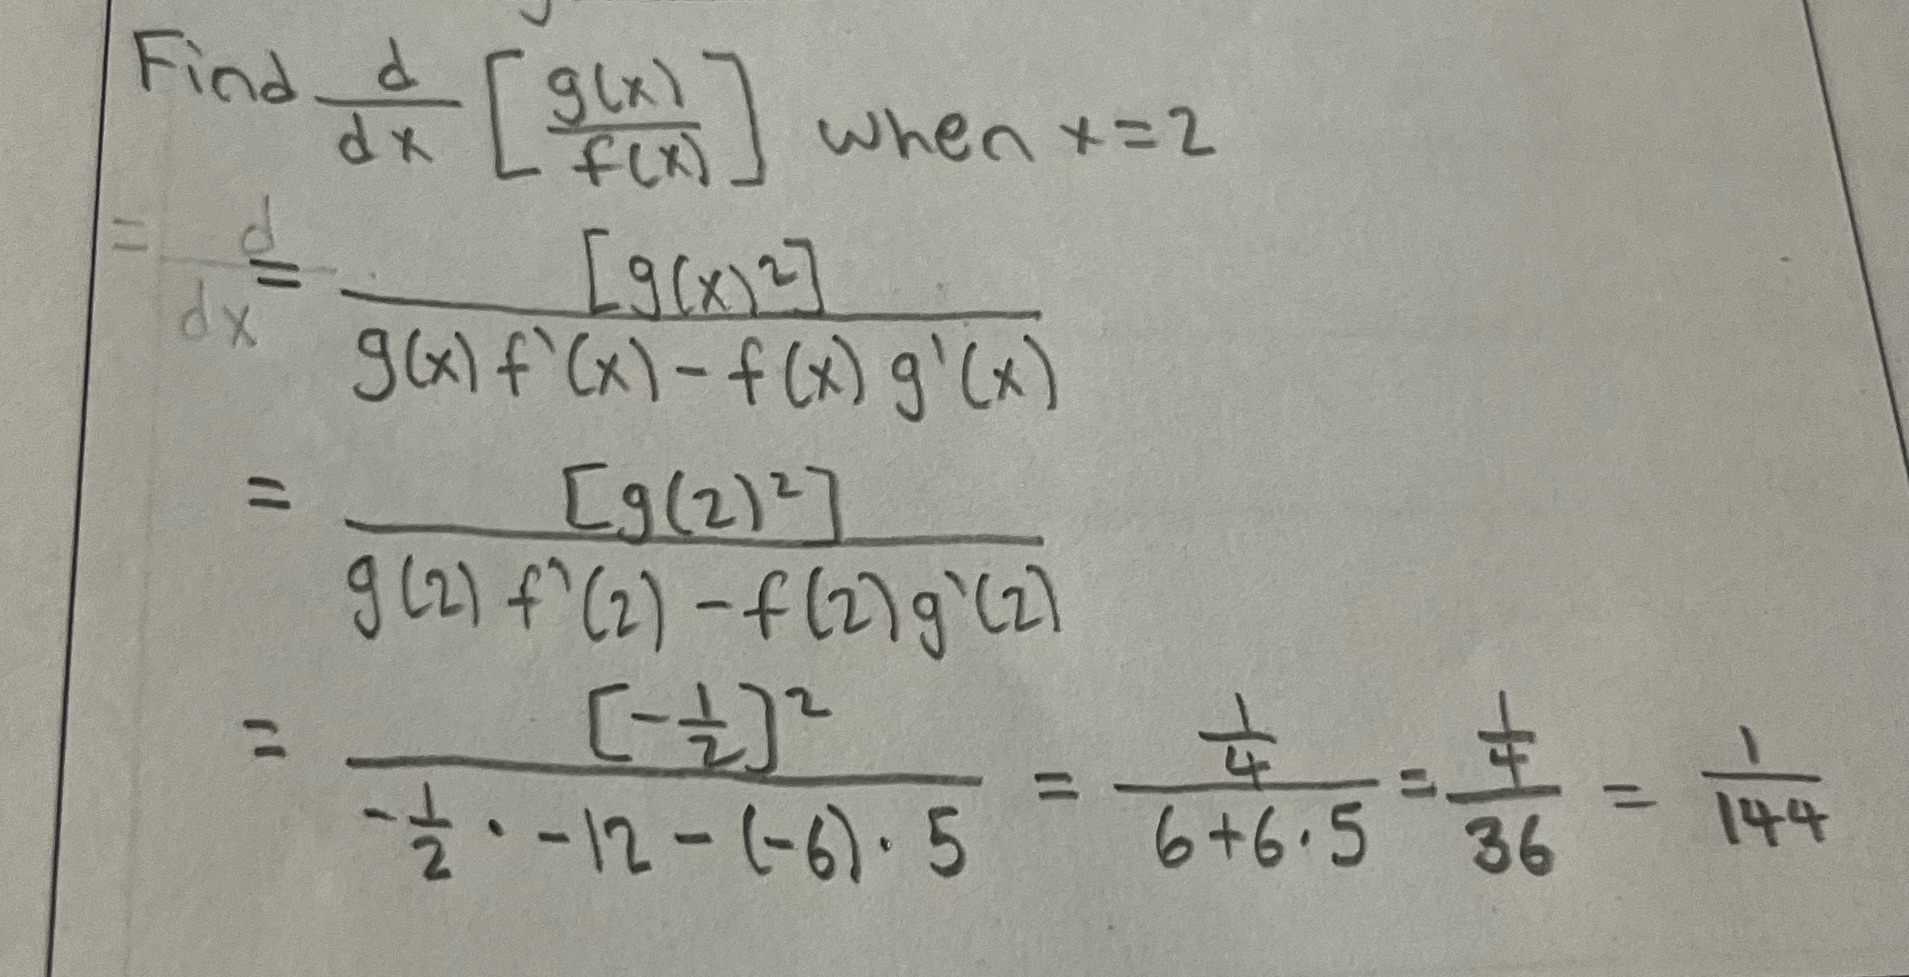 Find d/dx [g(x)/f(x)] when x=2
= d/dx
= [g(x)²] / g(x) f'(x) - f(x) g'(x)
= [g(2)²] / g(2) f'(2) - f(2) g'(2)
= [-1/2]² / -1/2 · -12 - (-6) · 5 = 1/4 / 6+6·5 = 1/4 / 36 = 1/144